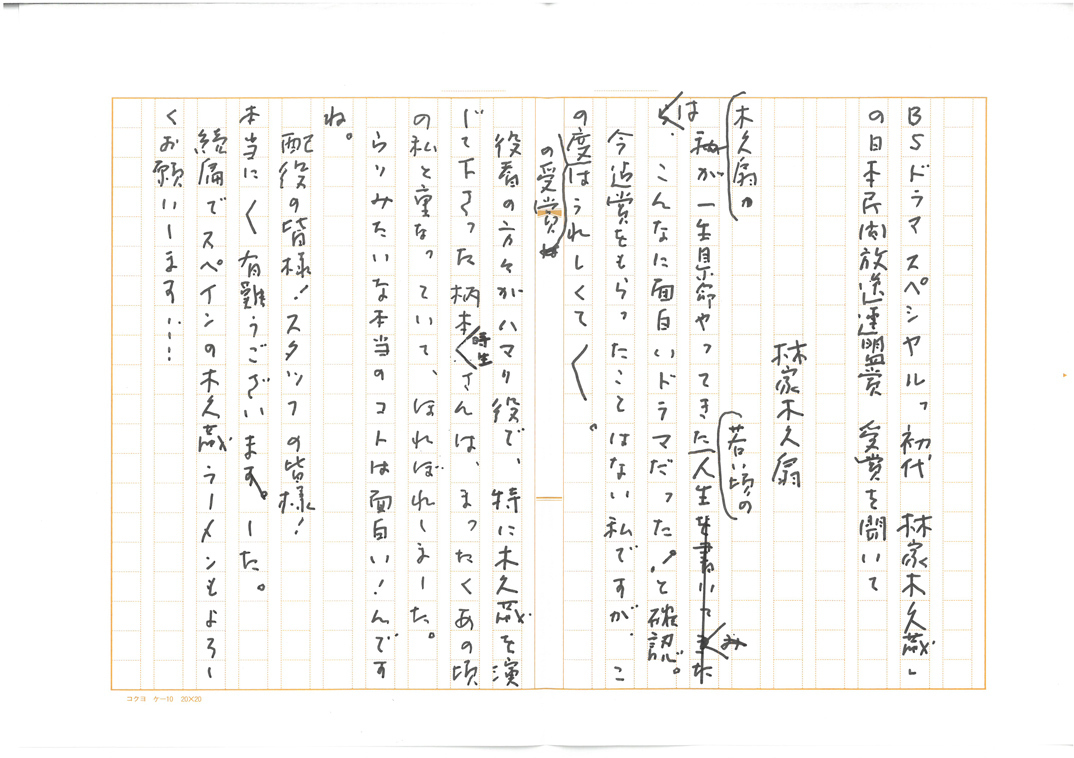 BSドラマスペシャル「初代 林家木久蔵」
の日本民間放送連盟賞 受賞を聞いて
林家木久扇
木久扇の
若い頃の
私が一生懸命やってきた人生を書いてみた
は、こんなに面白いドラマだった!と確認。
今迄賞をもらったことはない私ですが、こ
の度はうれしくて〱。
の受賞
役者の方々がハマり役で、特に木久蔵を演
じて下さった柄本時生さんは、まったくあの頃
の私と重なっていて、ほれぼれしました。
らくみたいな本当のコトは面白い!んです
ね。
配役の皆様!スタッフの皆様!
本当に〱有難うございます。した。
続篇でスペインの木久蔵ラーメンもよろし
くお願いします……
コクヨ ケー10 20×20